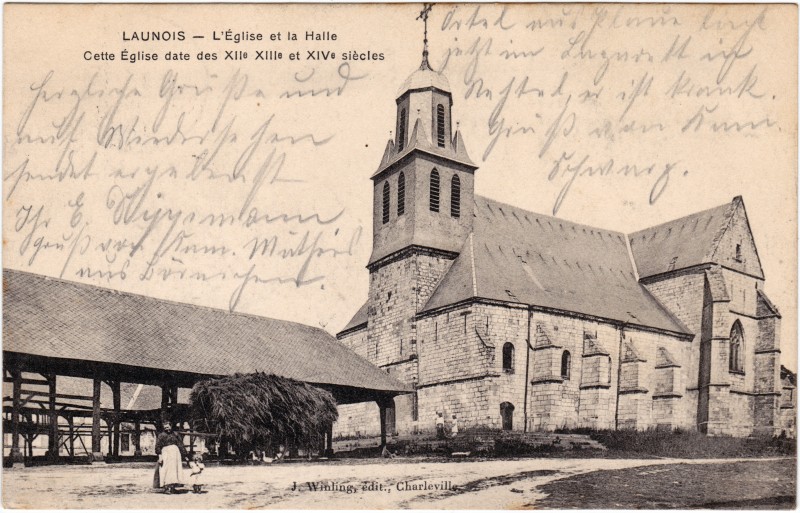 LAUNOIS — L'Église et la Halle
Cette Église date des XIIe XIIIe et XIVe siècles
Herzliche Grüße und
auf Wiedersehen
sendet ergebenst
Ihr E.
Gruß von Kam. Mathies
aus
Ortel aus Plaue liegt
jetzt im Lazarett in
Rethel, er ist krank.
Gruß von Kam.
Schwarz.
J. Winling, édit., Charleville